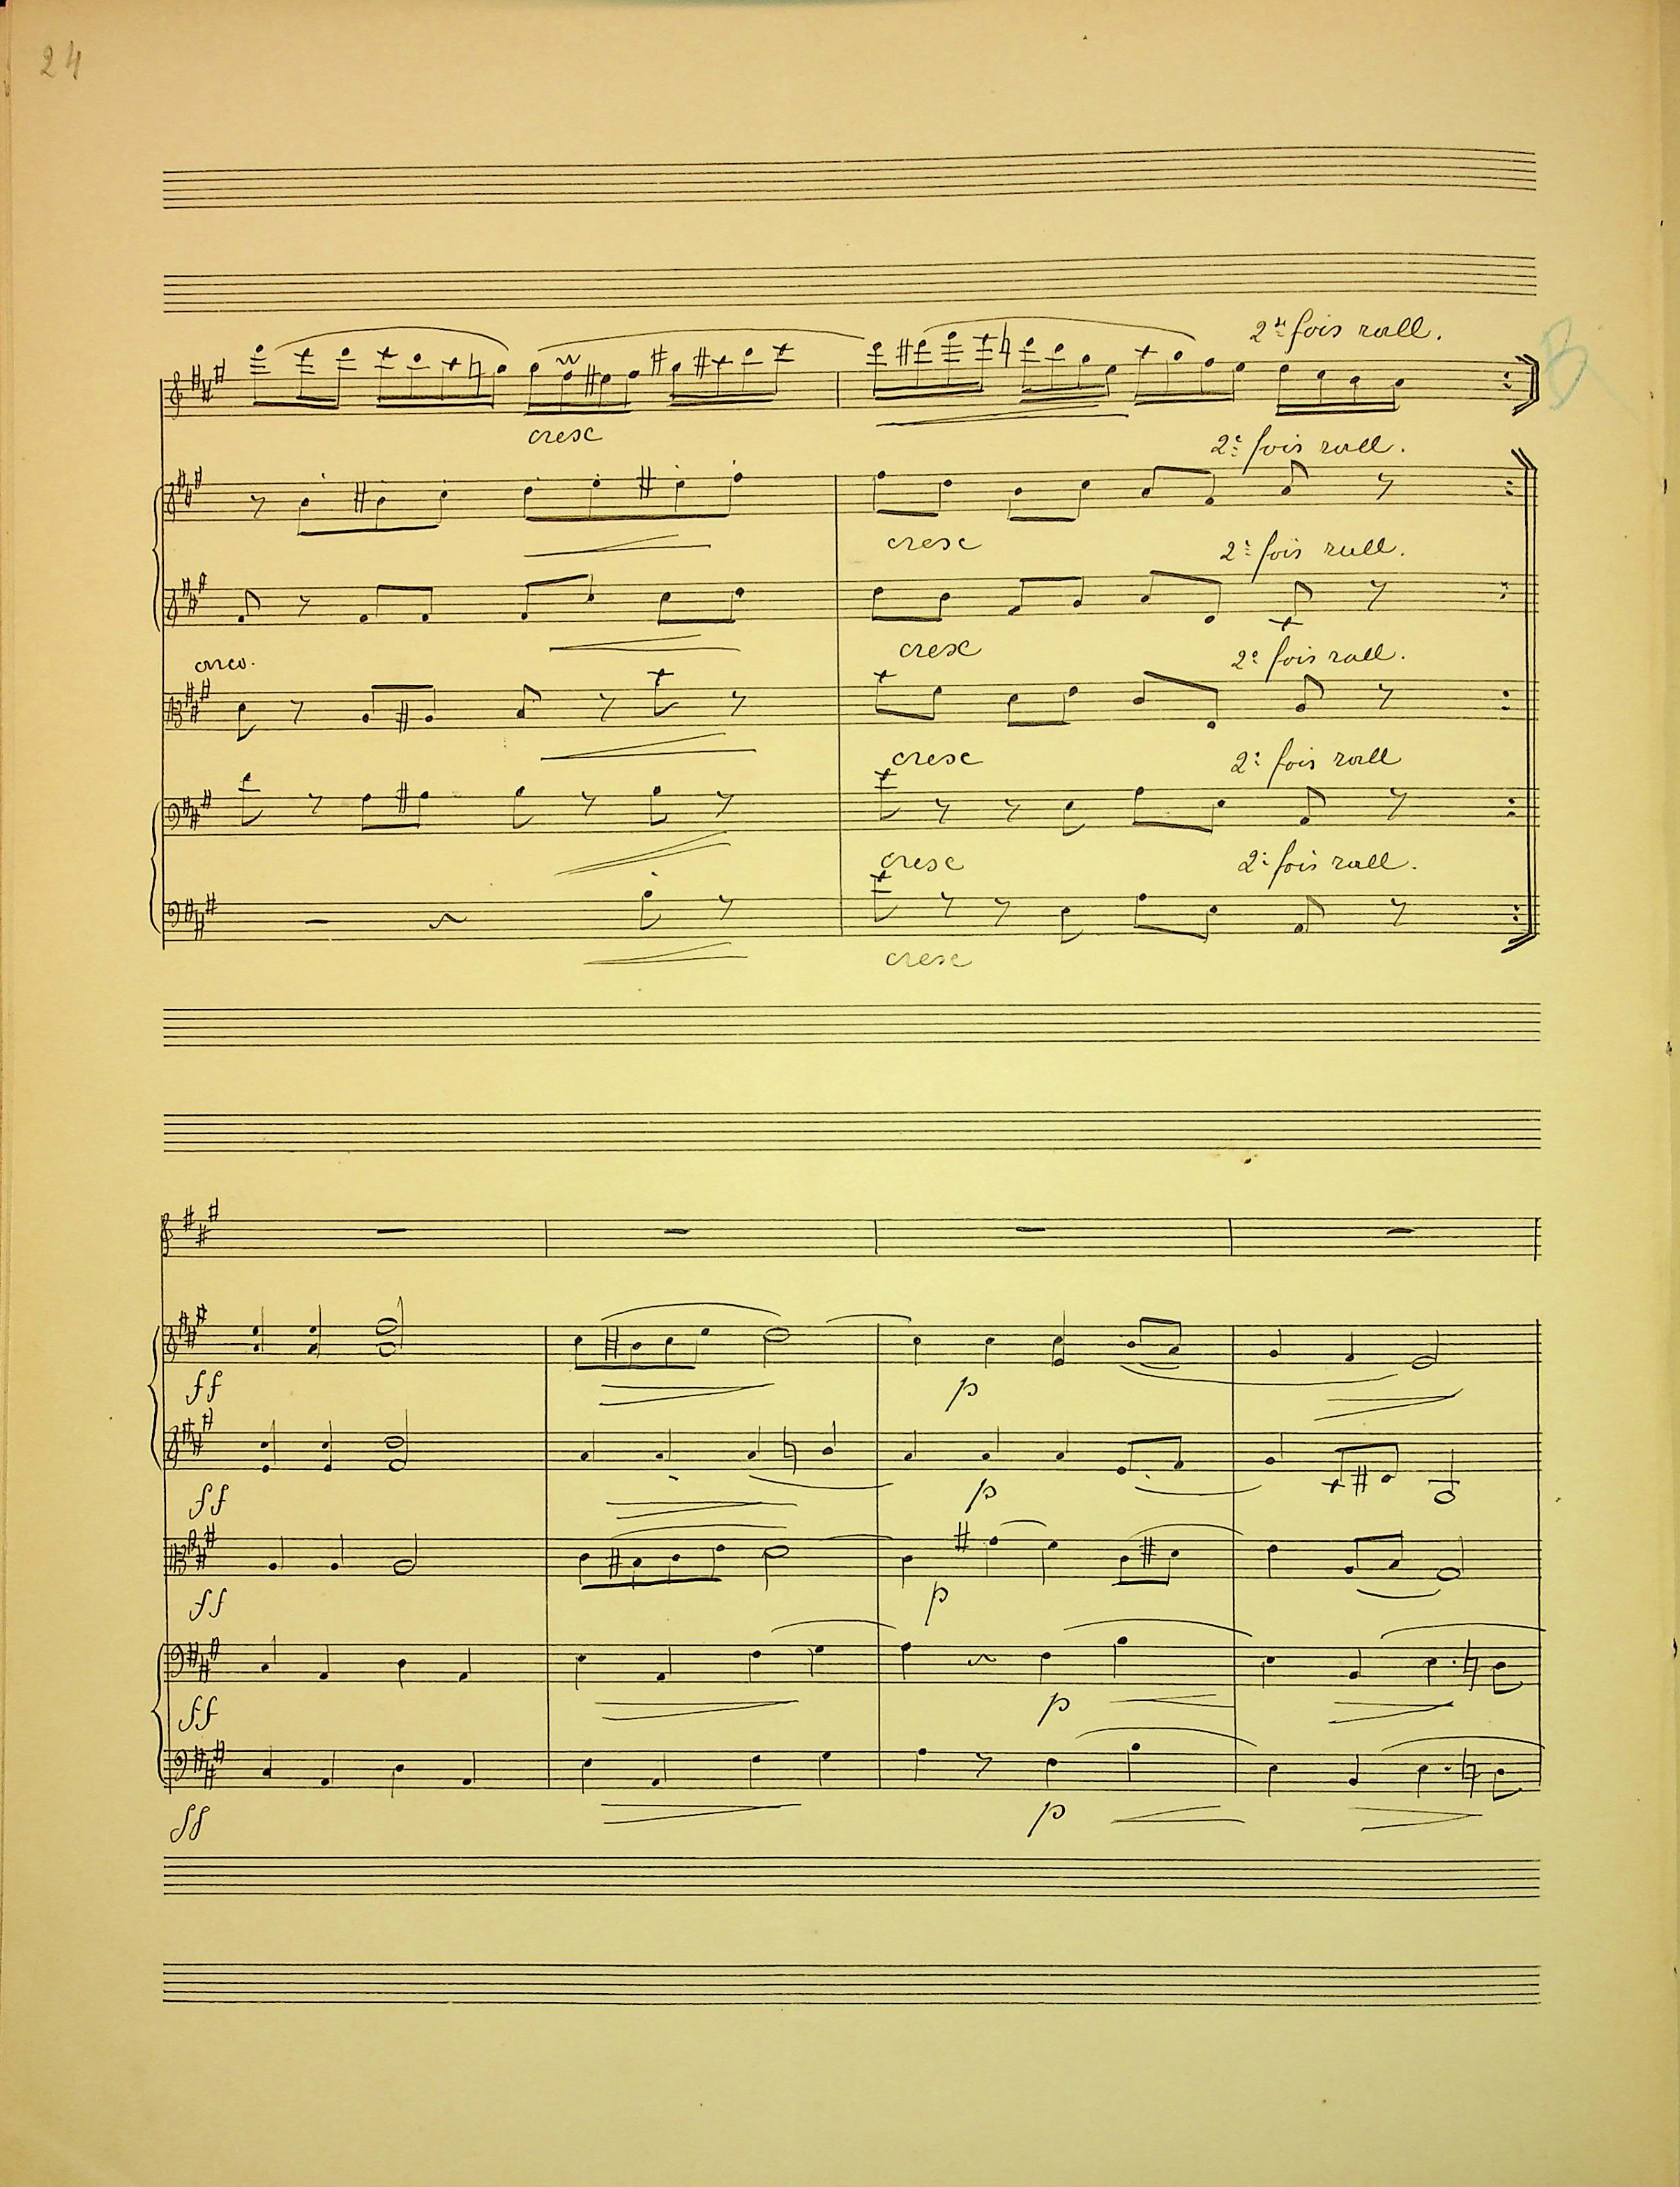 24
2e fois rall.
B
cresc
2e fois rall.
cresc
2e fois rall.
cresc
arco.
2e fois rall.
cresc
2e fois rall
cresc
2e fois rall.
cresc
ff
p
ff
p
ff
p
ff
p
ff
p